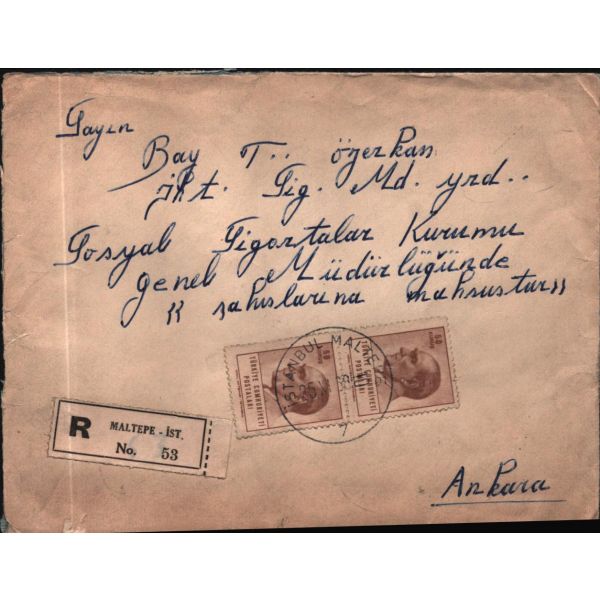 Sayın
Bay T.. Özerkan
İht. Sig. Md. yrd..
Sosyal Sigortalar Kurumu
genel Müdürlüğünde
"şahıslarına mahsustur"
60
TÜRKİYE CUMHURİYETİ
POSTALARI
60
TÜRKİYE CUMHURİYETİ
POSTALARI
İSTANBUL MALTEPE
7
R MALTEPE - İST.
No. 53
Ankara